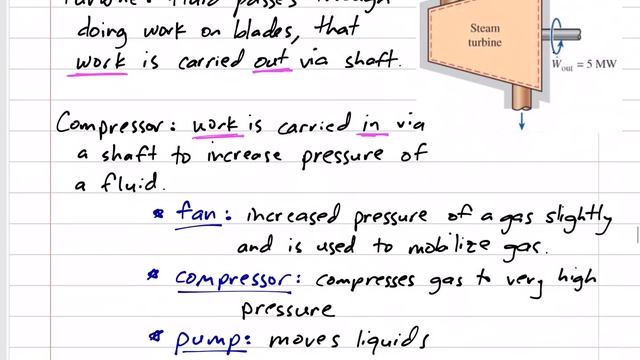 Turbine: fluid passes through
doing work on blades, that
work is carried out via shaft.
Steam
turbine
Ẇout = 5 MW
Compressor: work is carried in via
a shaft to increase pressure of
a fluid.
* fan: increased pressure of a gas slightly
and is used to mobilize gas.
* compressor: compresses gas to very high
pressure
* pump: moves liquids